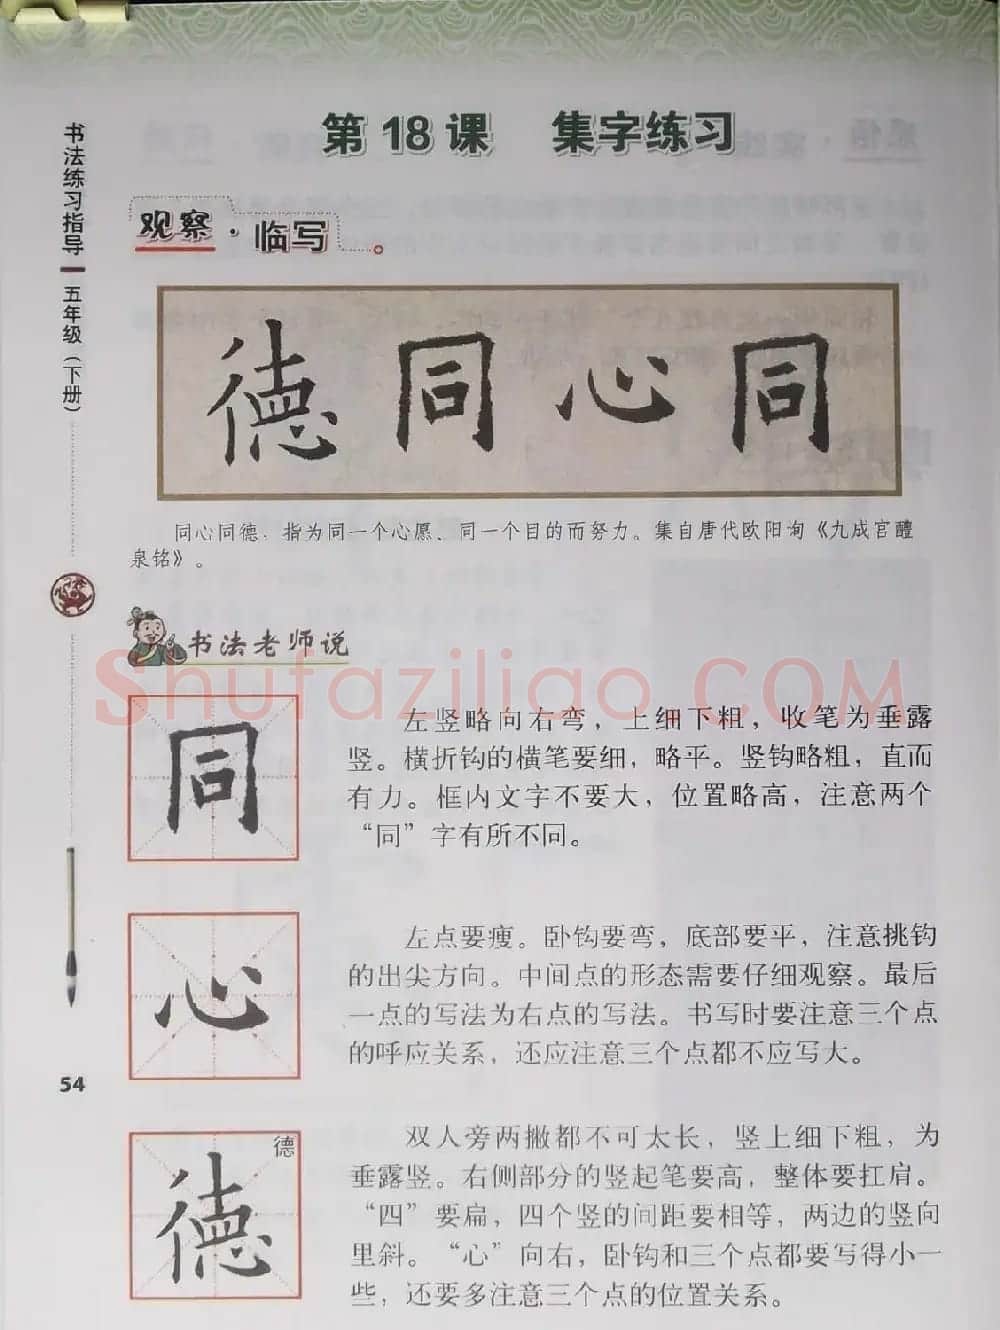 第18课 集字练习
书法练习指导
五年级（下册）
观察·临写
德同心同
同心同德，指为同一个心愿、同一个目的而努力。集自唐代欧阳询《九成宫醴
泉铭》。
书法老师说
Shufaziliao.COM
同
左竖略向右弯，上细下粗，收笔为垂露
竖。横折钩的横笔要细，略平。竖钩略粗，直而
有力。框内文字不要大，位置略高，注意两个
“同”字有所不同。
心
左点要瘦。卧钩要弯，底部要平，注意挑钩
的出尖方向。中间点的形态需要仔细观察。最后
一点的写法为右点的写法。书写时要注意三个点
的呼应关系，还应注意三个点都不应写大。
54
德
德
双人旁两撇都不可太长，竖上细下粗，为
垂露竖。右侧部分的竖起笔要高，整体要扛肩。
“四”要扁，四个竖的间距要相等，两边的竖向
里斜。“心”向右，卧钩和三个点都要写得小一
些，还要多注意三个点的位置关系。